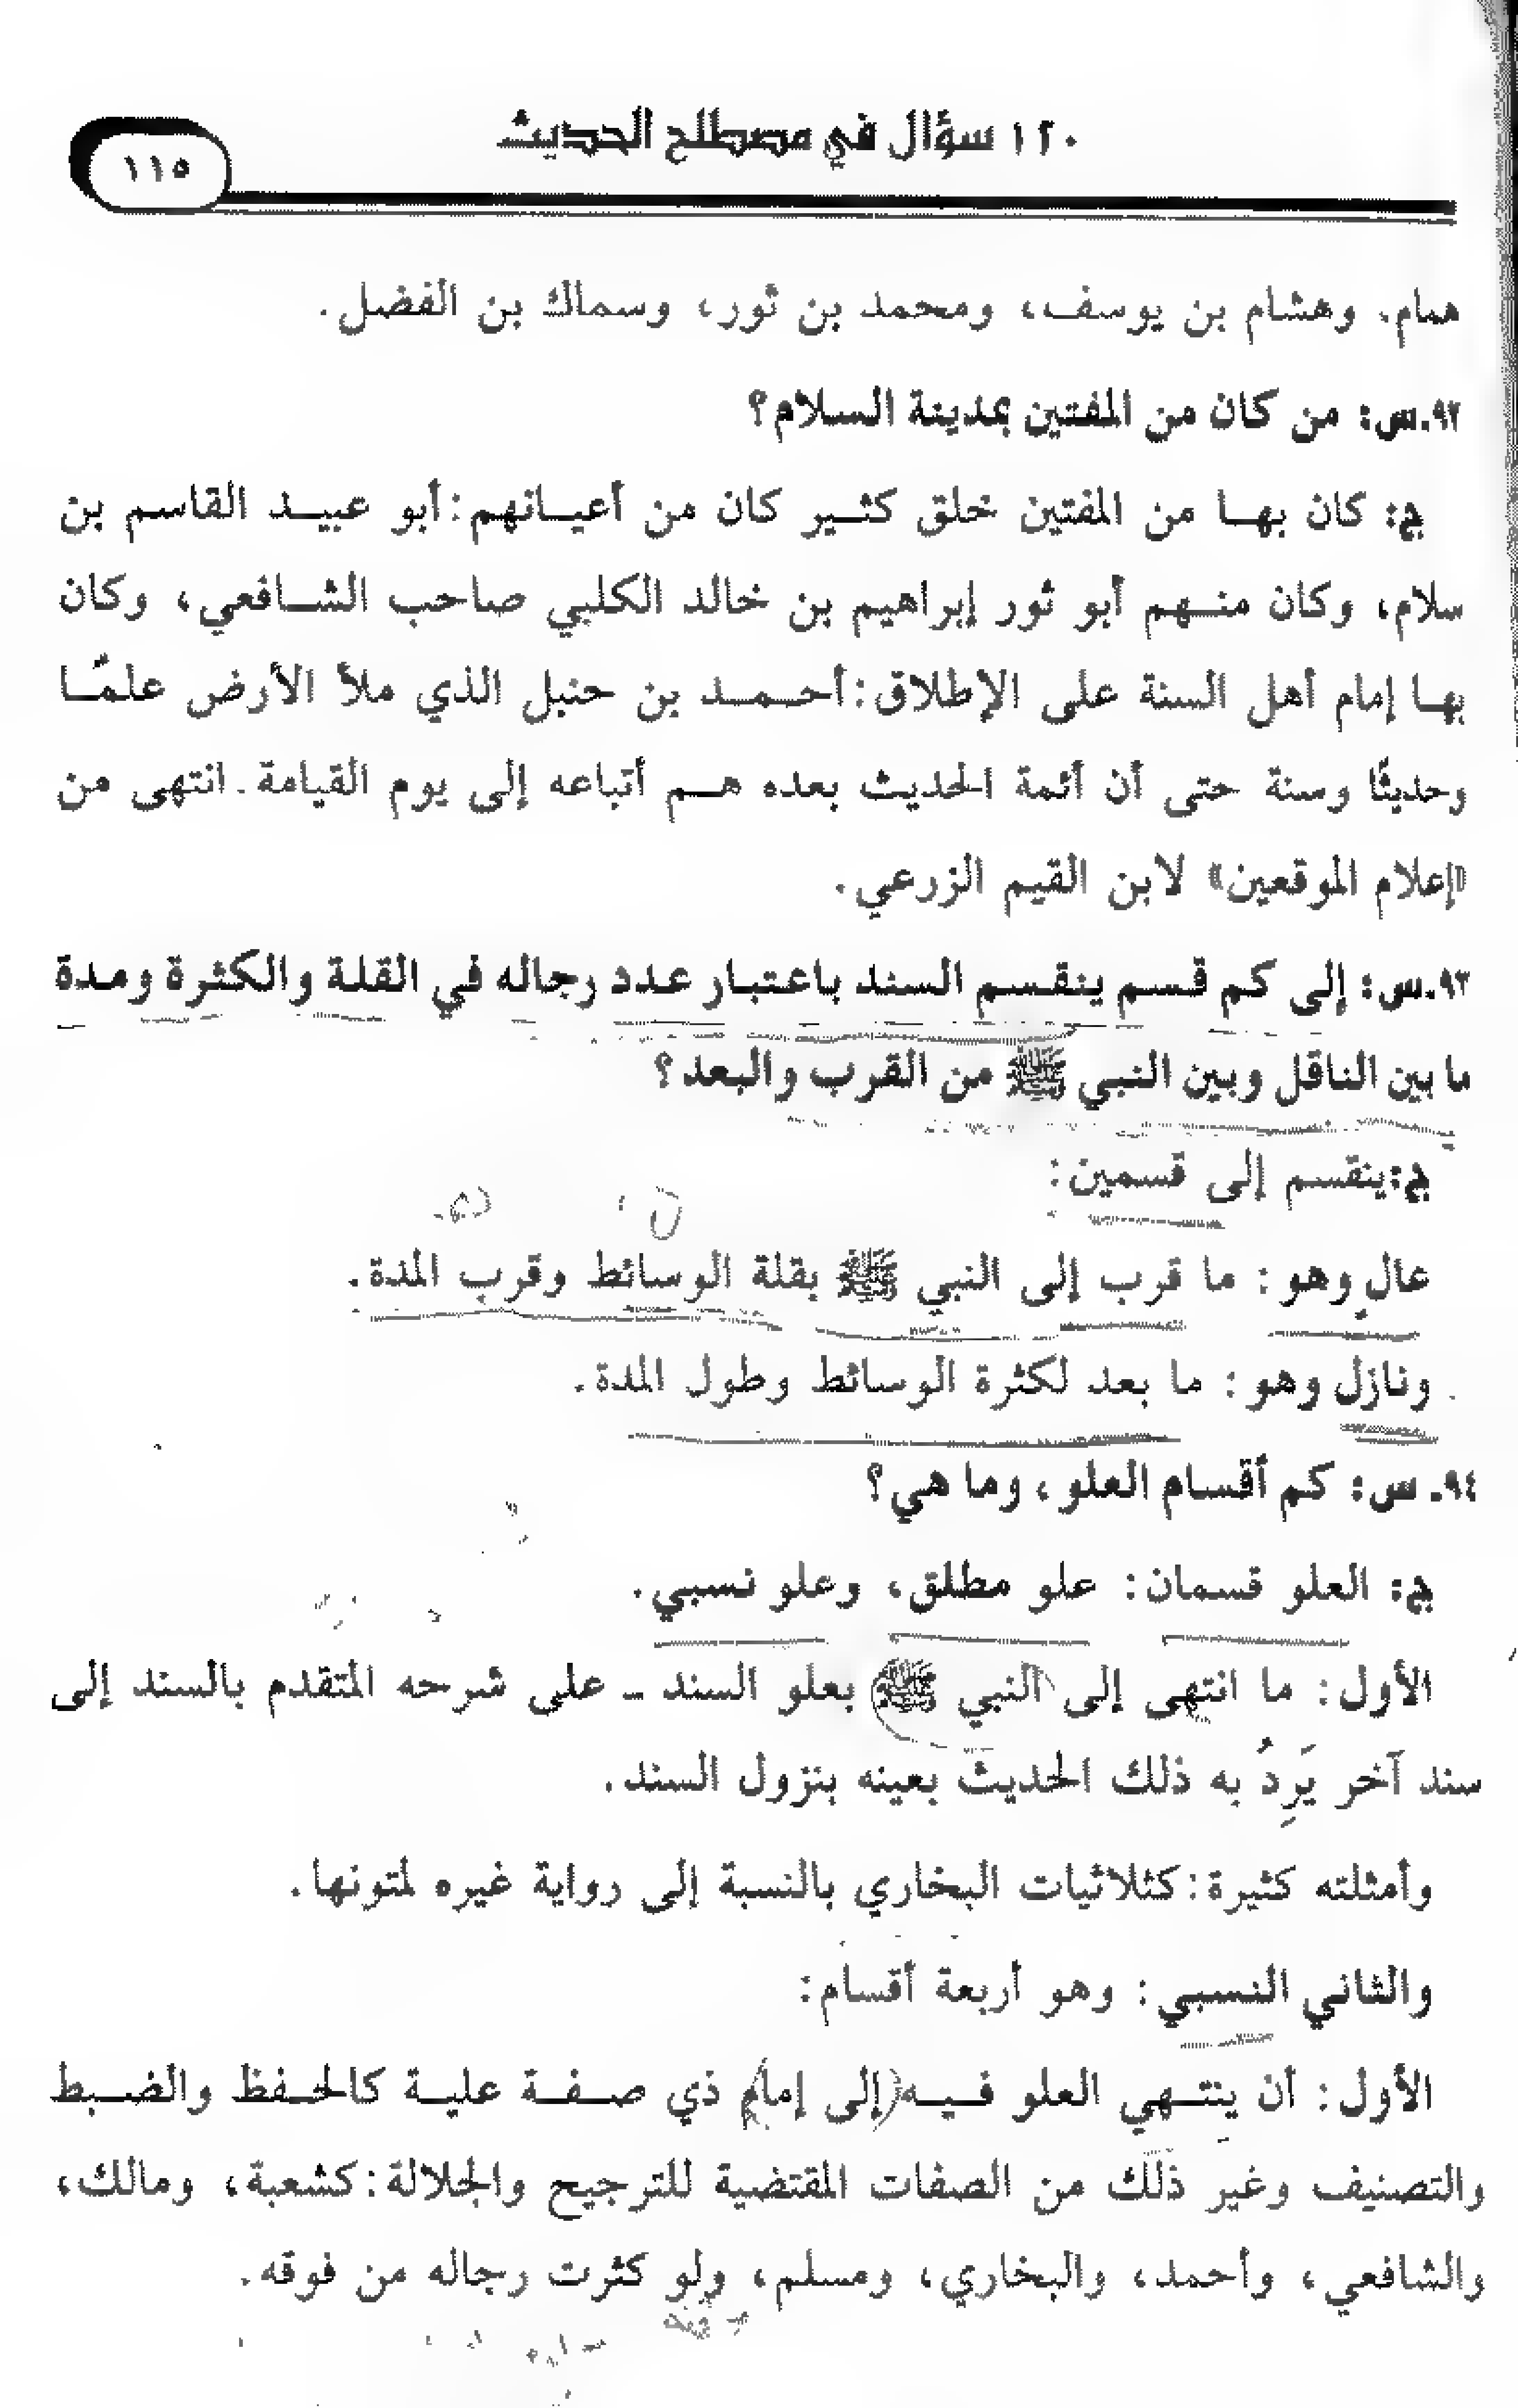 ١٢٠ سؤال في مصطلح الحديث
١١٥
همام. وهشام بن يوسف، ومحمد بن ثور، وسماك بن الفضل.
٩٢.س: من كان من المفتين بمدينة السلام؟
ج: كان بهـا من المفتين خلق كثـير كان من أعيـانهم: أبو عبيـد القاسم بن
سلام، وكان منـهم أبو ثور إبراهيم بن خالد الكلبي صاحب الشـافعي، وكان
بهـا إمام أهل السنة على الإطلاق: أحـمـد بن حنبل الذي ملأ الأرض علمًـا
وحديثًا وسنة حتى أن أئمة الحديث بعده هـم أتباعه إلى يوم القيامة. انتهى من
«إعلام الموقعين» لابن القيم الزرعي.
٩٣.س: إلى كم قسم ينقسم السند باعتبار عدد رجاله في القلة والكثرة ومدة
ما بين الناقل وبين النبي ﷺ من القرب والبعد؟
ج: ينقسم إلى قسمين:
عالٍ وهو: ما قرب إلى النبي ﷺ بقلة الوسائط وقرب المدة.
ونازل وهو: ما بعد لكثرة الوسائط وطول المدة.
٩٤. س: كم أقسام العلو، وما هي؟
ج: العلو قسمان: علو مطلق، وعلو نسبي.
الأول: ما انتهى إلى النبي ﷺ بعلو السند ــ على شرحه المتقدم بالسند إلى
سند آخر يَرِدُ به ذلك الحديث بعينه بنزول السند.
وأمثلته كثيرة: كثلاثيات البخاري بالنسبة إلى رواية غيره لمتونها.
والثاني النسبي: وهو أربعة أقسام:
الأول: أن ينتـهي العلو فـيـه (إلى إمام) ذي صـفـة عليـة كالحـفظ والضـبط
والتصنيف وغير ذلك من الصفات المقتضية للترجيح والجلالة: كشعبة، ومالك،
والشافعي، وأحمد، والبخاري، ومسلم، ولو كثرت رجاله من فوقه.